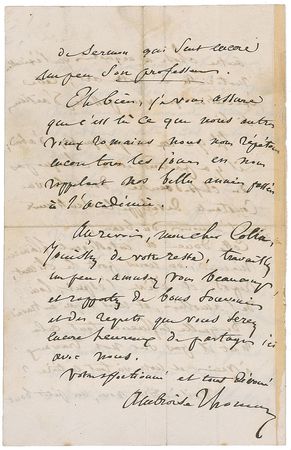 de sermon qui sent encore
un peu son professeur.
Eh bien, je vous assure
que c'est là ce que nous autres
vieux romains nous nous répétons
encore tous les jours en nous
rappelant nos belles années passées
à l'académie.
Au revoir, mon cher Colin,
Jouissez de votre reste, travaillez
un peu, amusez vous beaucoup,
et rapportez de bons souvenirs
et des regrets que vous serez
encore heureux de partager ici
avec nous.
Votre affectionné et tout dévoué
Ambroise Thomas